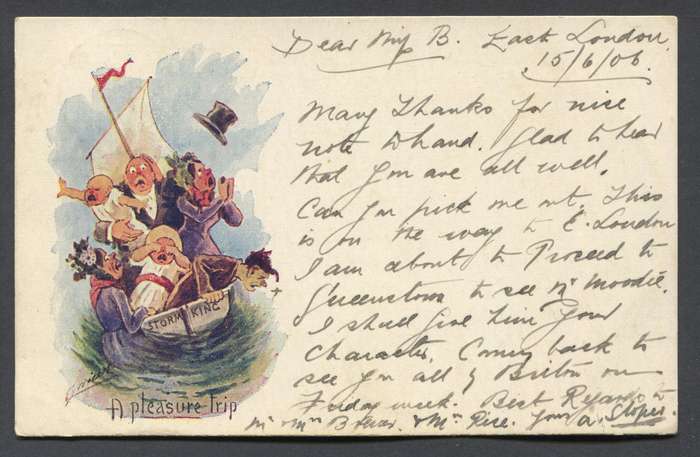 Dear Miss B. East London,
15/6/06
Many Thanks for nice
note to hand. Glad to hear
that you are all well.
Can you pick me out. This
is on the way to E. London
I am about to Proceed to
Queenstown to see Mr Moodie.
I shall give him your
Character. Coming back to
see you all of on
Friday week. Best Regards to
Mr & Mrs & Mr Rice. Yours a. Sloper.
STORM KING
A pleasure trip